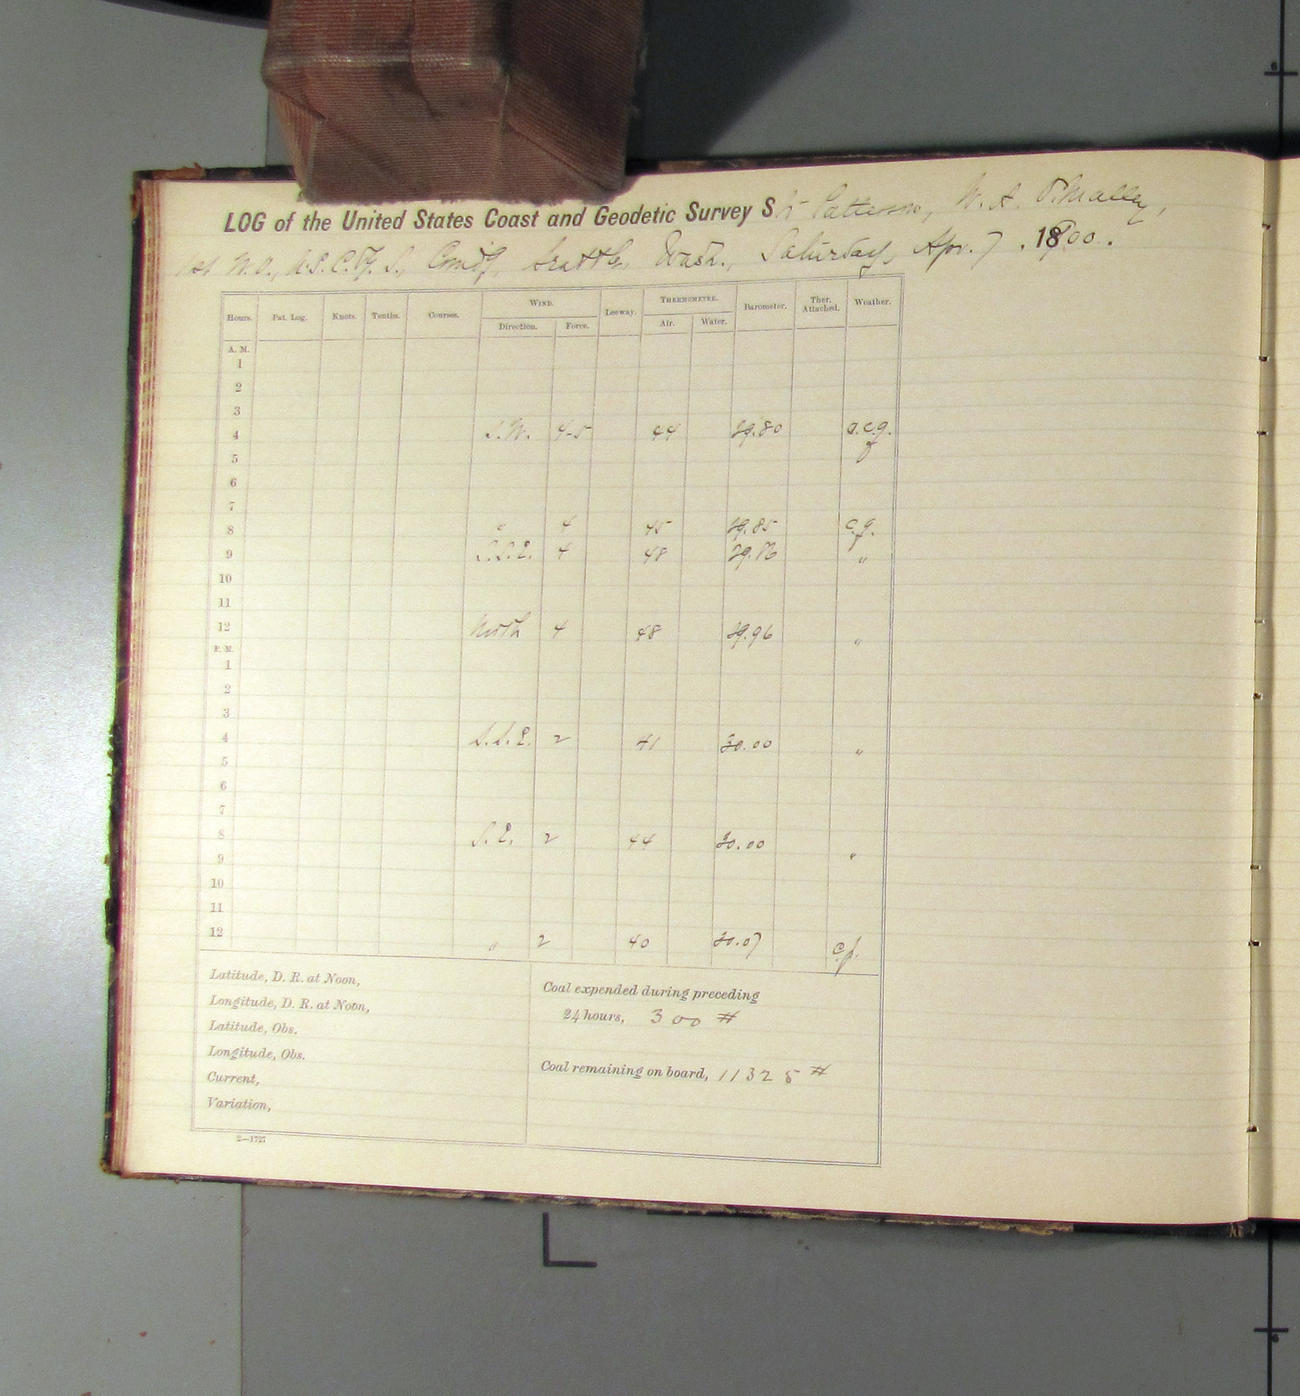 LOG of the United States Coast and Geodetic Survey Str Patterson, W. A. O'Malley,
1st W.O., U.S.C.&G.S., Comd'g, Seattle, Wash., Saturday, Apr. 7, 1900.
Hours. Pat. Log. Knots. Tenths. Courses. WIND. Leeway. THERMOMETER. Barometer. Ther. Attached. Weather.
Direction. Force. Air. Water.
A. M.
1
2
3
4 S.W. 4-5 44 29.80 o.c.q.
5
6
7
8 " 4 45 29.85 c.q.
9 S.S.E. 4 48 29.86 "
10
11
12 North 4 48 29.96 "
P. M.
1
2
3
4 S.S.E. 2 41 30.00 "
5
6
7
8 S.E. 2 44 30.00 "
9
10
11
12 " 2 40 30.07
Latitude, D. R. at Noon,
Longitude, D. R. at Noon,
Latitude, Obs.
Longitude, Obs.
Current,
Variation,
Coal expended during preceding
24 hours, 300 #
Coal remaining on board, 11325 #
2—1727